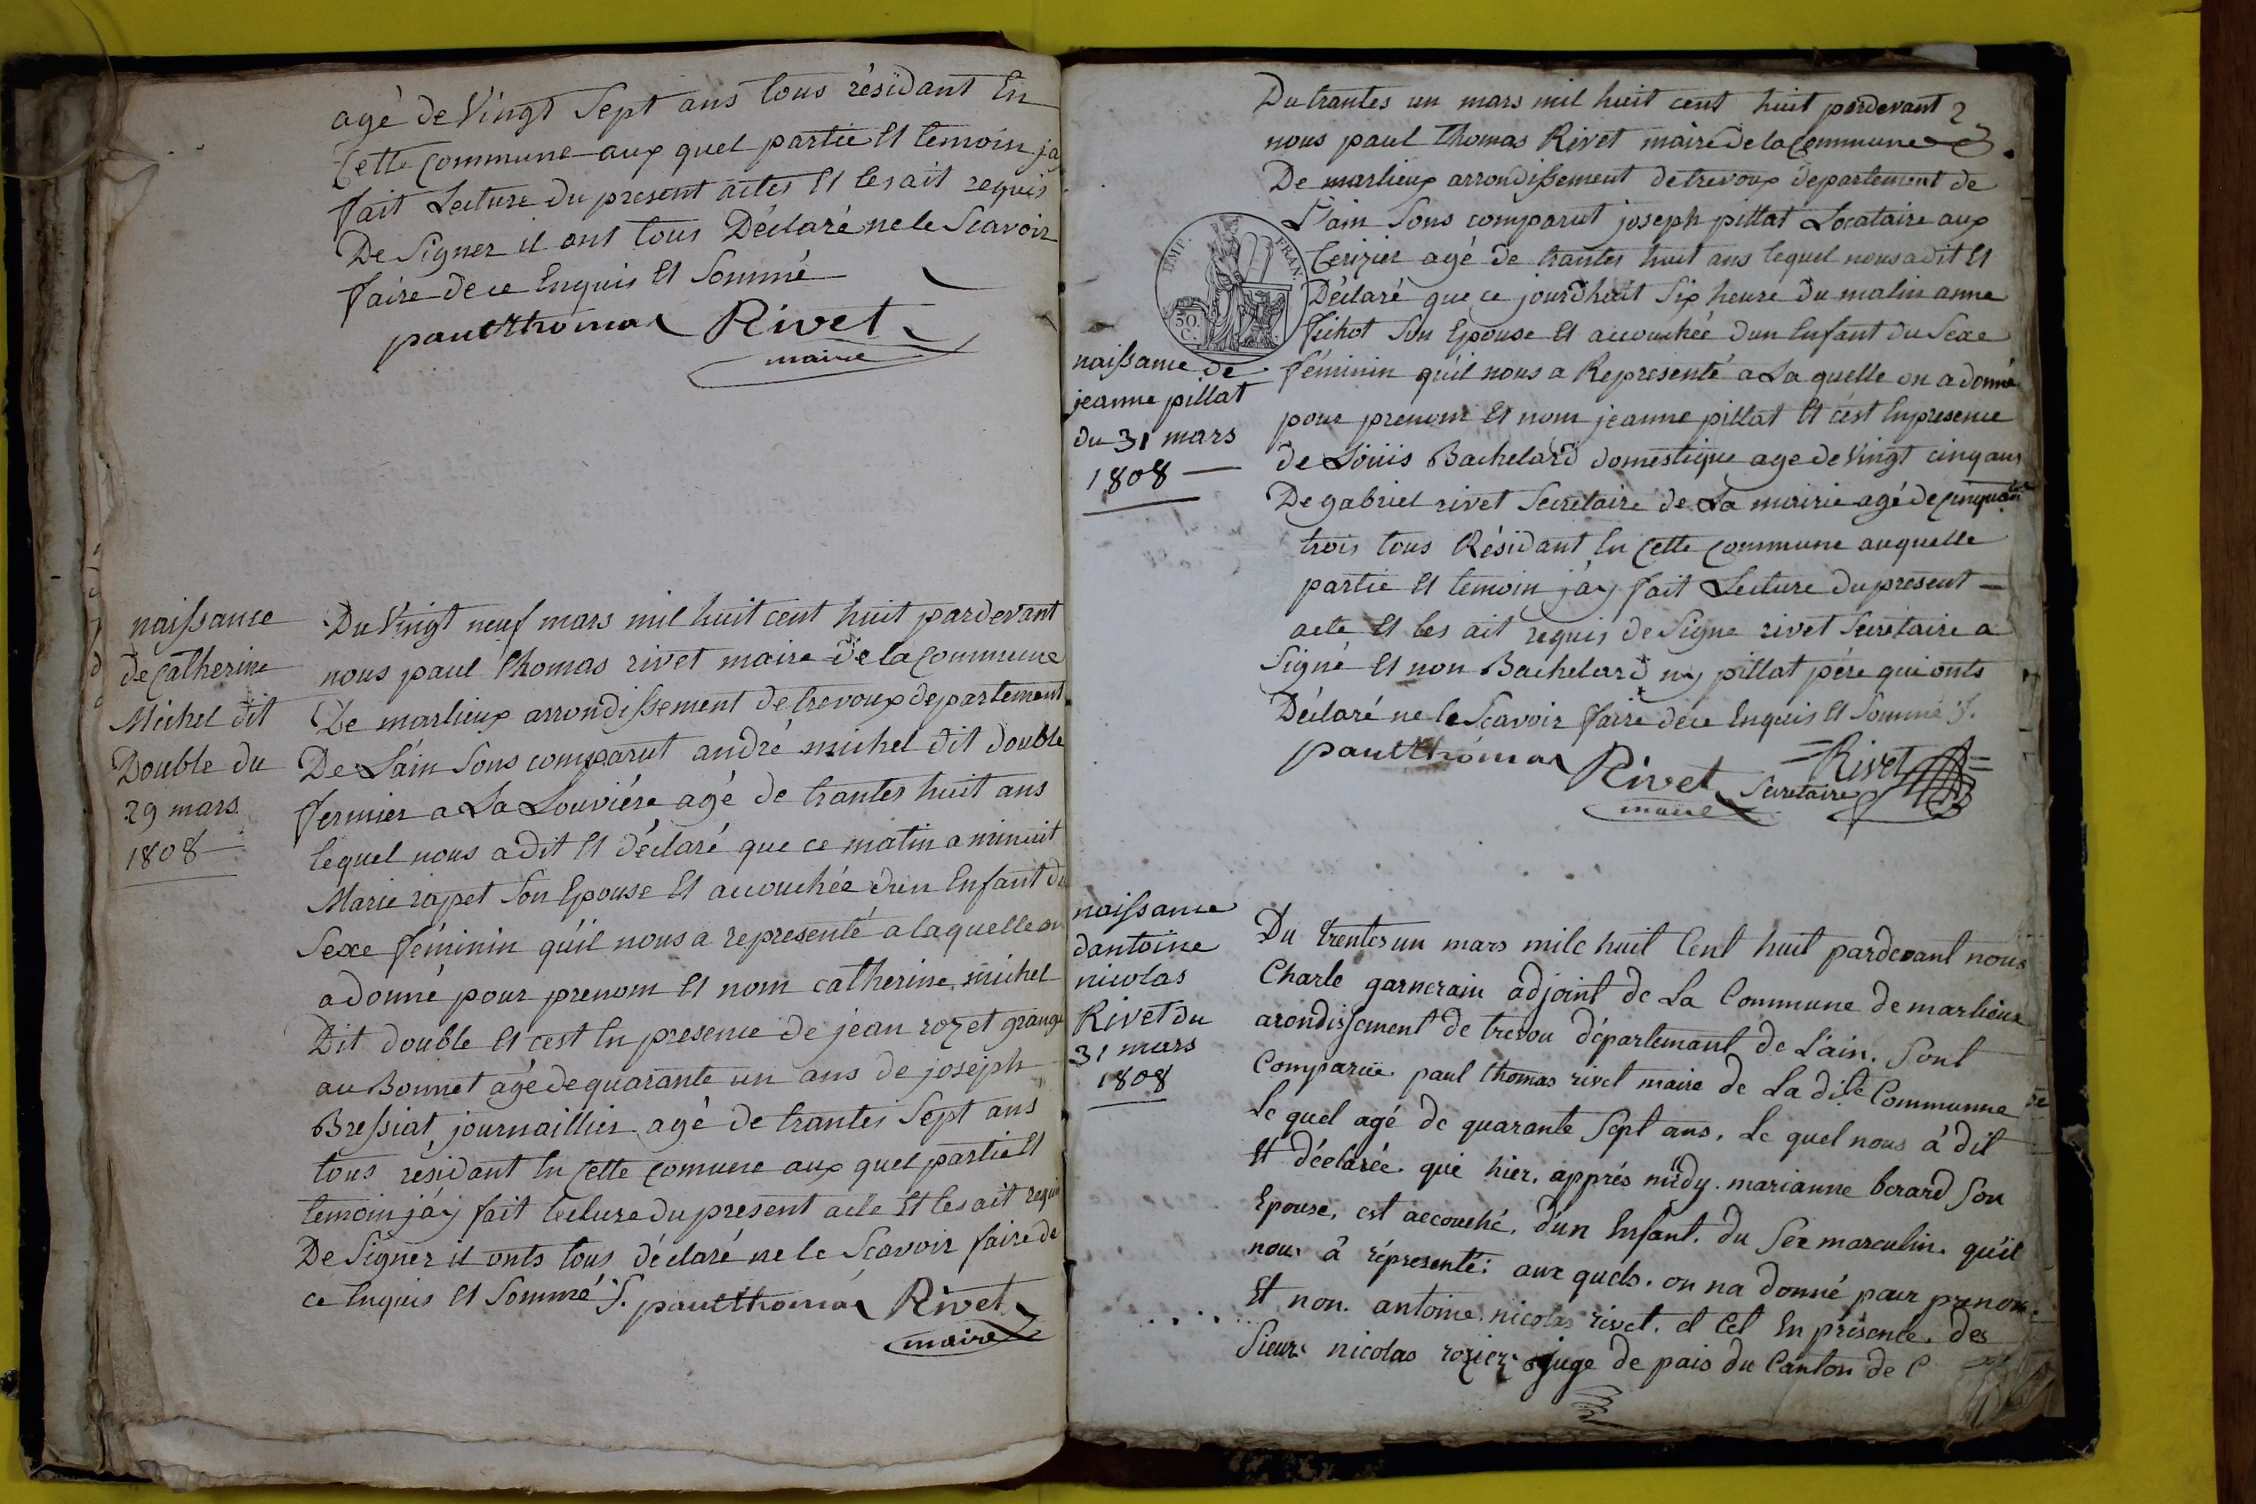 agé de Vingt Sept ans tous résidant En
Cette Commune aux quel partie Et temoin ja
fait Lecture du present actes Et les ait requis
De Signer il ont tous Déclaré ne le Scavoir
faire de ce Enquis Et Sommé
paulthomas Rivet
maire
naissance
de catherine
Michel dit
Double du
29 mars
1808
Du Vingt neuf mars mil huit cent huit pardevant
nous paul thomas rivet maire de la Commune
De marlieux arrondissement de trevoux departement
De L'ain Sons comparut andré michel dit double
fermier a La Louviére agé de trantes huit ans
lequel nous a dit Et déclaré que ce matin a minuit
Marie rappet Son Epouse Et accouchée d'un Enfant du
Sexe féminin qu'il nous a representé a laquelle on
a donné pour prenom Et nom catherine michel
Dit double Et c'est En presence de jean rozet grange
au Bonnet agé de quarante un ans de joseph
Bressiat journaillier agé de trantes Sept ans
tous residant En Cette comune aux quel partie Et
temoin j'áy fait lecture du present acte Et les ait requis
De Signer il onts tous déclaré ne le Scavoir faire de
ce Enquis Et Sommé S. paulthomas Rivet
maire
Du trantes un mars mil huit cent huit pardevant
nous paul thomas Rivet maire de la Commune
De marlieux arrondissement de trevoux departement de
L'ain Sons comparut joseph pillat Locataire aux
Cerizier agé de trantes huit ans lequel nous a dit Et
Déclaré que ce jourd'huit Six heure du matin anne
fichot Son Epouse Et accouchée d'un Enfant du Sexe
féminin qu'il nous a Representé a La quelle on a donné
pour prenom Et nom jeanne pillat Et c'est En presence
de Loüis Bachelard domestique age de Vingt cinq ans
De gabriel rivet Secretaire de La mairie agé de Cinquante
trois tous Résidant En Cette Commune auquelle
partie Et temoin j'áy fait Lecture du present
acte Et les ait requis de Signe rivet Secretaire a
Signé Et non Bachelard ny pillat pére qui onts
Déclaré ne le Scavoir faire de ce Enquis Et Sommé S.
paulthomas Rivet Rivet
maire Secretaire
EMP. FRAN.
50. C.
naissance de
jeanne pillat
du 31 mars
1808
naissance
dantoine
nicolas
Rivet du
31 mars
1808
Du trentes un mars mile huit Cent huit pardevant nous
Charle garnerain adjoint de La Commune de marlieux
arondissement de trevou département de L'ain. Sont
Comparüe paul thomas rivet maire de La dite Commune
Le quel agé de quarante Sept ans, Le quel nous á dit
Et déclarée que hier, apprés midy. marianne berard Son
Epouse, est accouché, d'un Enfant. du Sex masculin. qu'il
nous â réprésenté: aux quels. on na donné pour prenom
Et non. antoine nicolas rivet. et Cet En présence. des
Sieurs nicolas rozier juge de pais du Canton de C